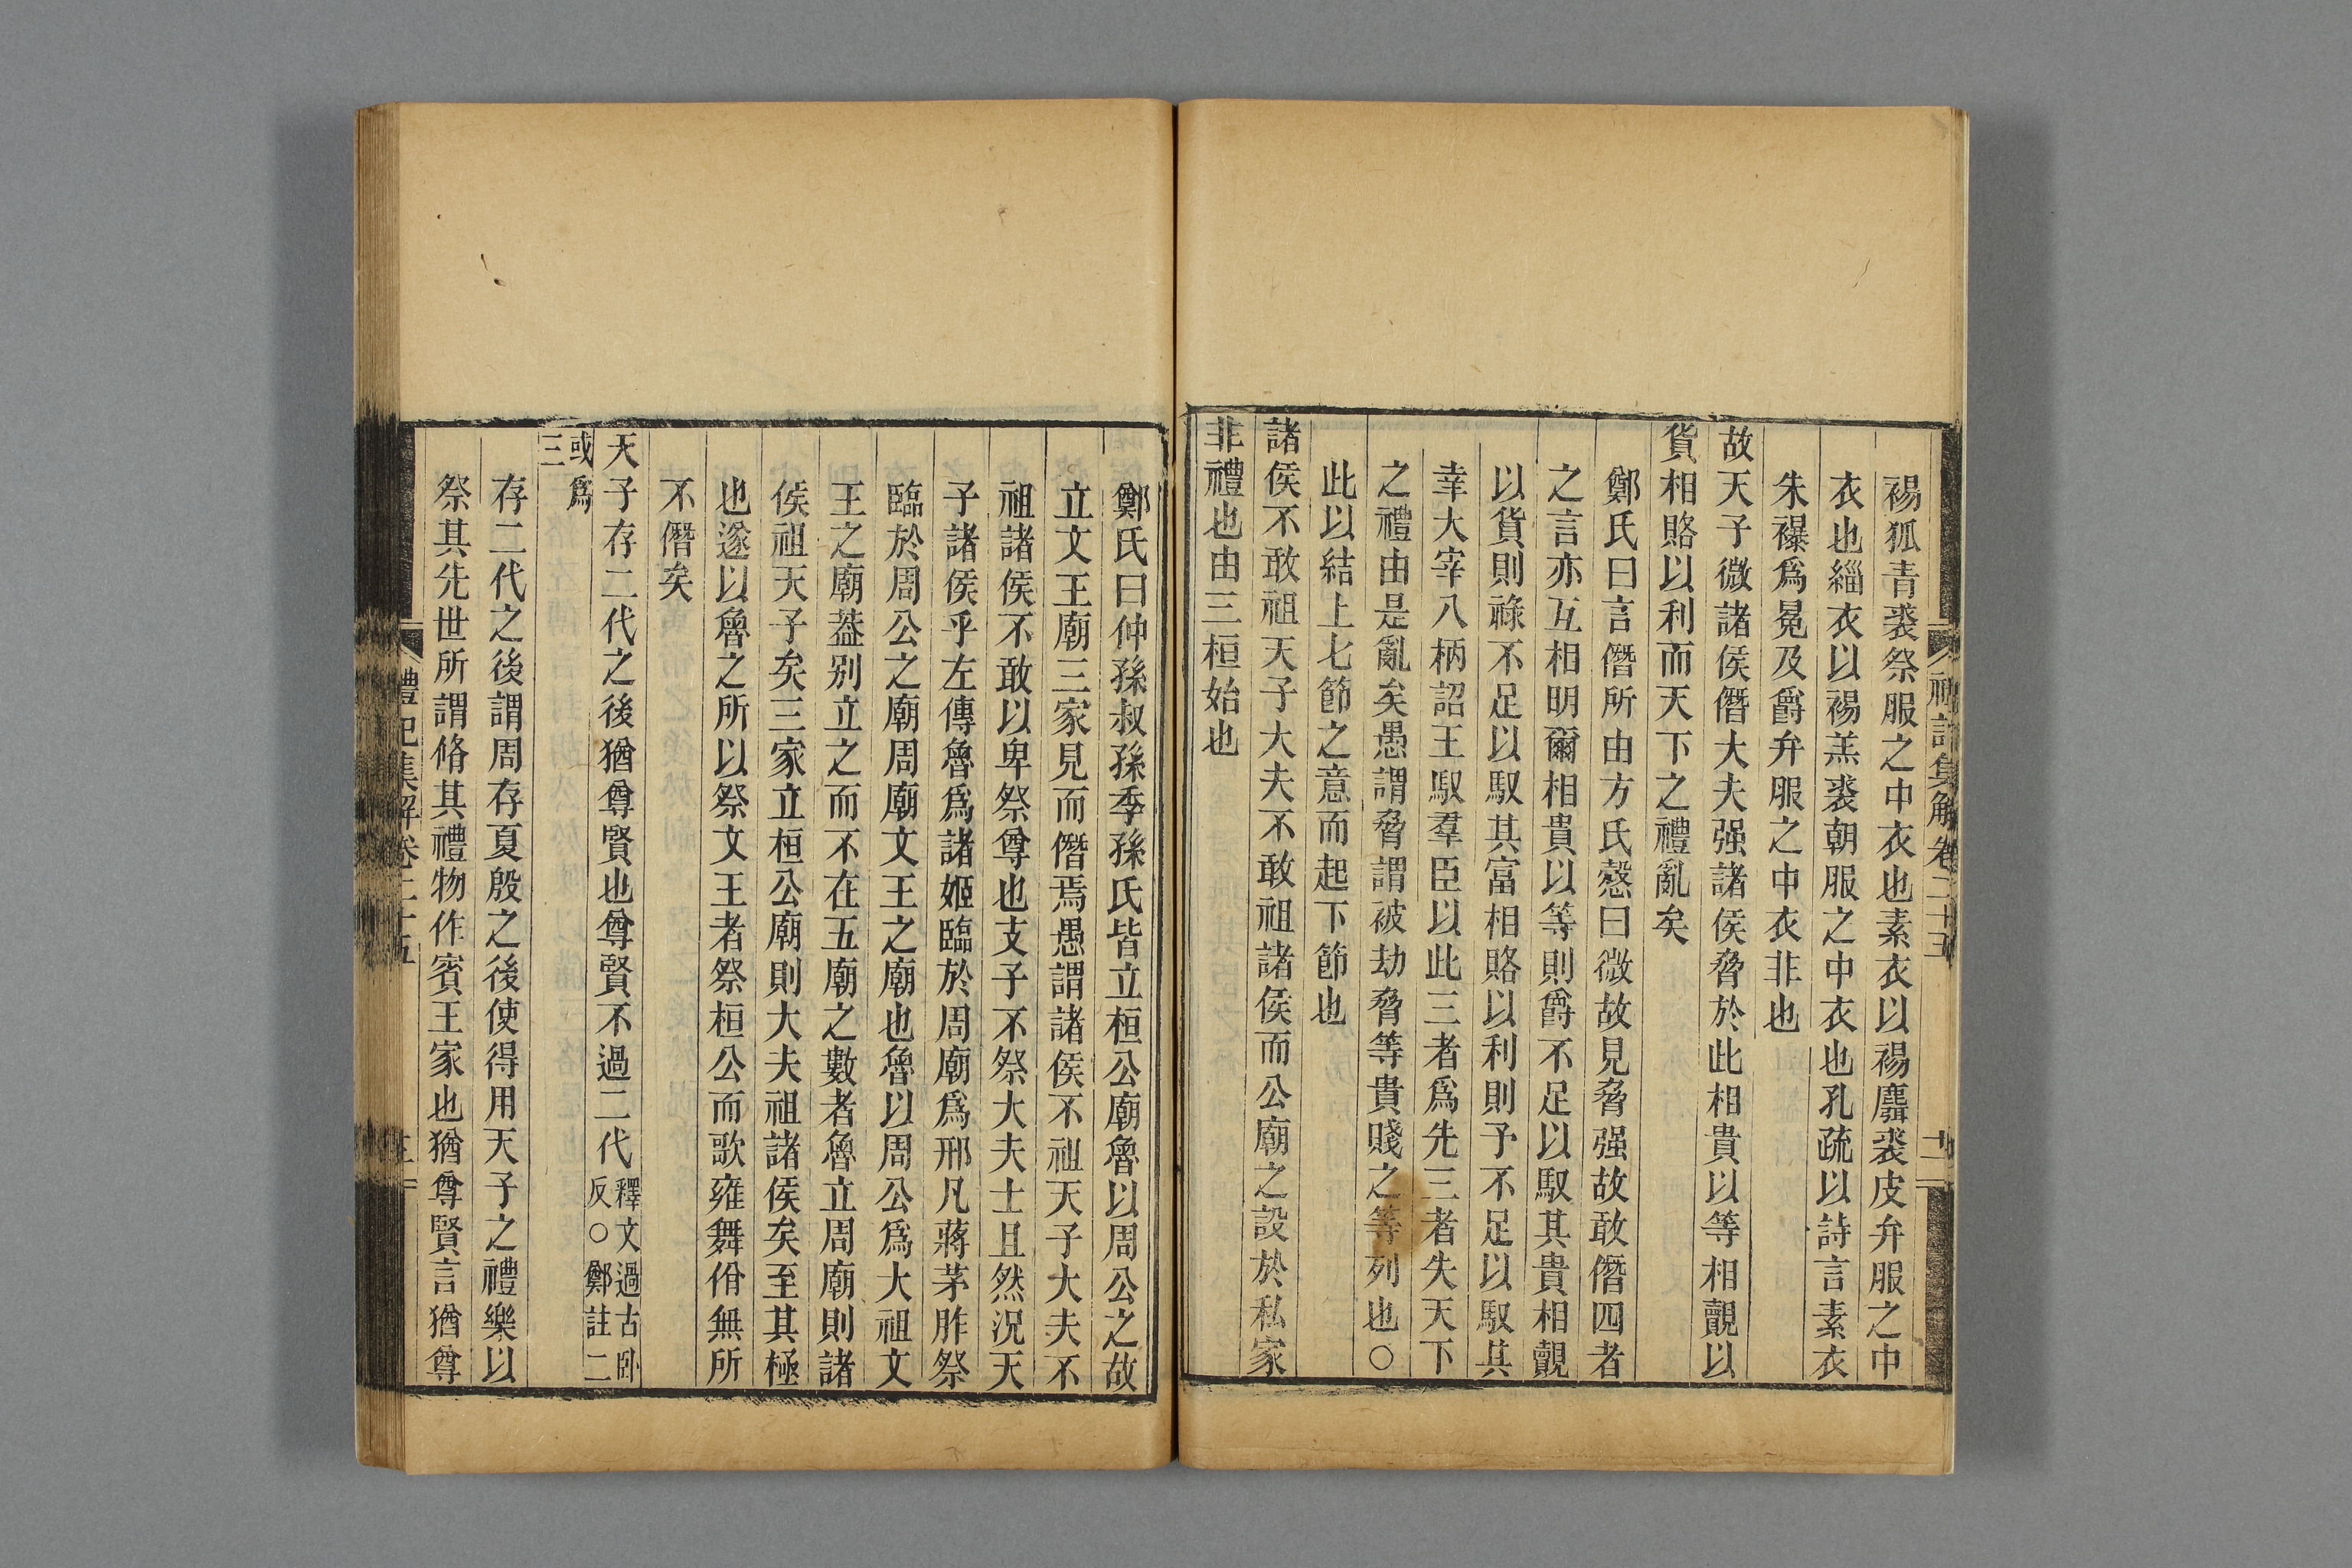 禮記集解卷二十五
十二
裼狐青裘祭服之中衣也素衣以裼麛裘皮弁服之中
衣也緇衣以裼羔裘朝服之中衣也孔疏以詩言素衣
朱襮爲冕及爵弁服之中衣非也
故天子微諸侯僭大夫强諸侯脅於此相貴以等相覿以
貨相賂以利而天下之禮亂矣
鄭氏曰言僭所由方氏慤曰微故見脅强故敢僭四者
之言亦互相明爾相貴以等則爵不足以馭其貴相覿
以貨則祿不足以馭其富相賂以利則予不足以馭其
幸大宰八柄詔王馭羣臣以此三者爲先三者失天下
之禮由是亂矣愚謂脅謂被劫脅等貴賤之等列也○
此以結上七節之意而起下節也
諸侯不敢祖天子大夫不敢祖諸侯而公廟之設於私家
非禮也由三桓始也
鄭氏曰仲孫叔孫季孫氏皆立桓公廟魯以周公之故
立文王廟三家見而僭焉愚謂諸侯不祖天子大夫不
祖諸侯不敢以卑祭尊也支子不祭大夫士且然況天
子諸侯乎左傳魯爲諸姬臨於周廟爲邢凡蔣茅胙祭
臨於周公之廟周廟文王之廟也魯以周公爲大祖文
王之廟葢别立之而不在五廟之數者魯立周廟則諸
侯祖天子矣三家立桓公廟則大夫祖諸侯矣至其極
也遂以魯之所以祭文王者祭桓公而歌雍舞佾無所
不僭矣
天子存二代之後猶尊賢也尊賢不過二代釋文過古卧反○鄭註二
或爲三
存二代之後謂周存夏殷之後使得用天子之禮樂以
祭其先世所謂脩其禮物作賓王家也猶尊賢言猶尊
禮記集解卷二十五